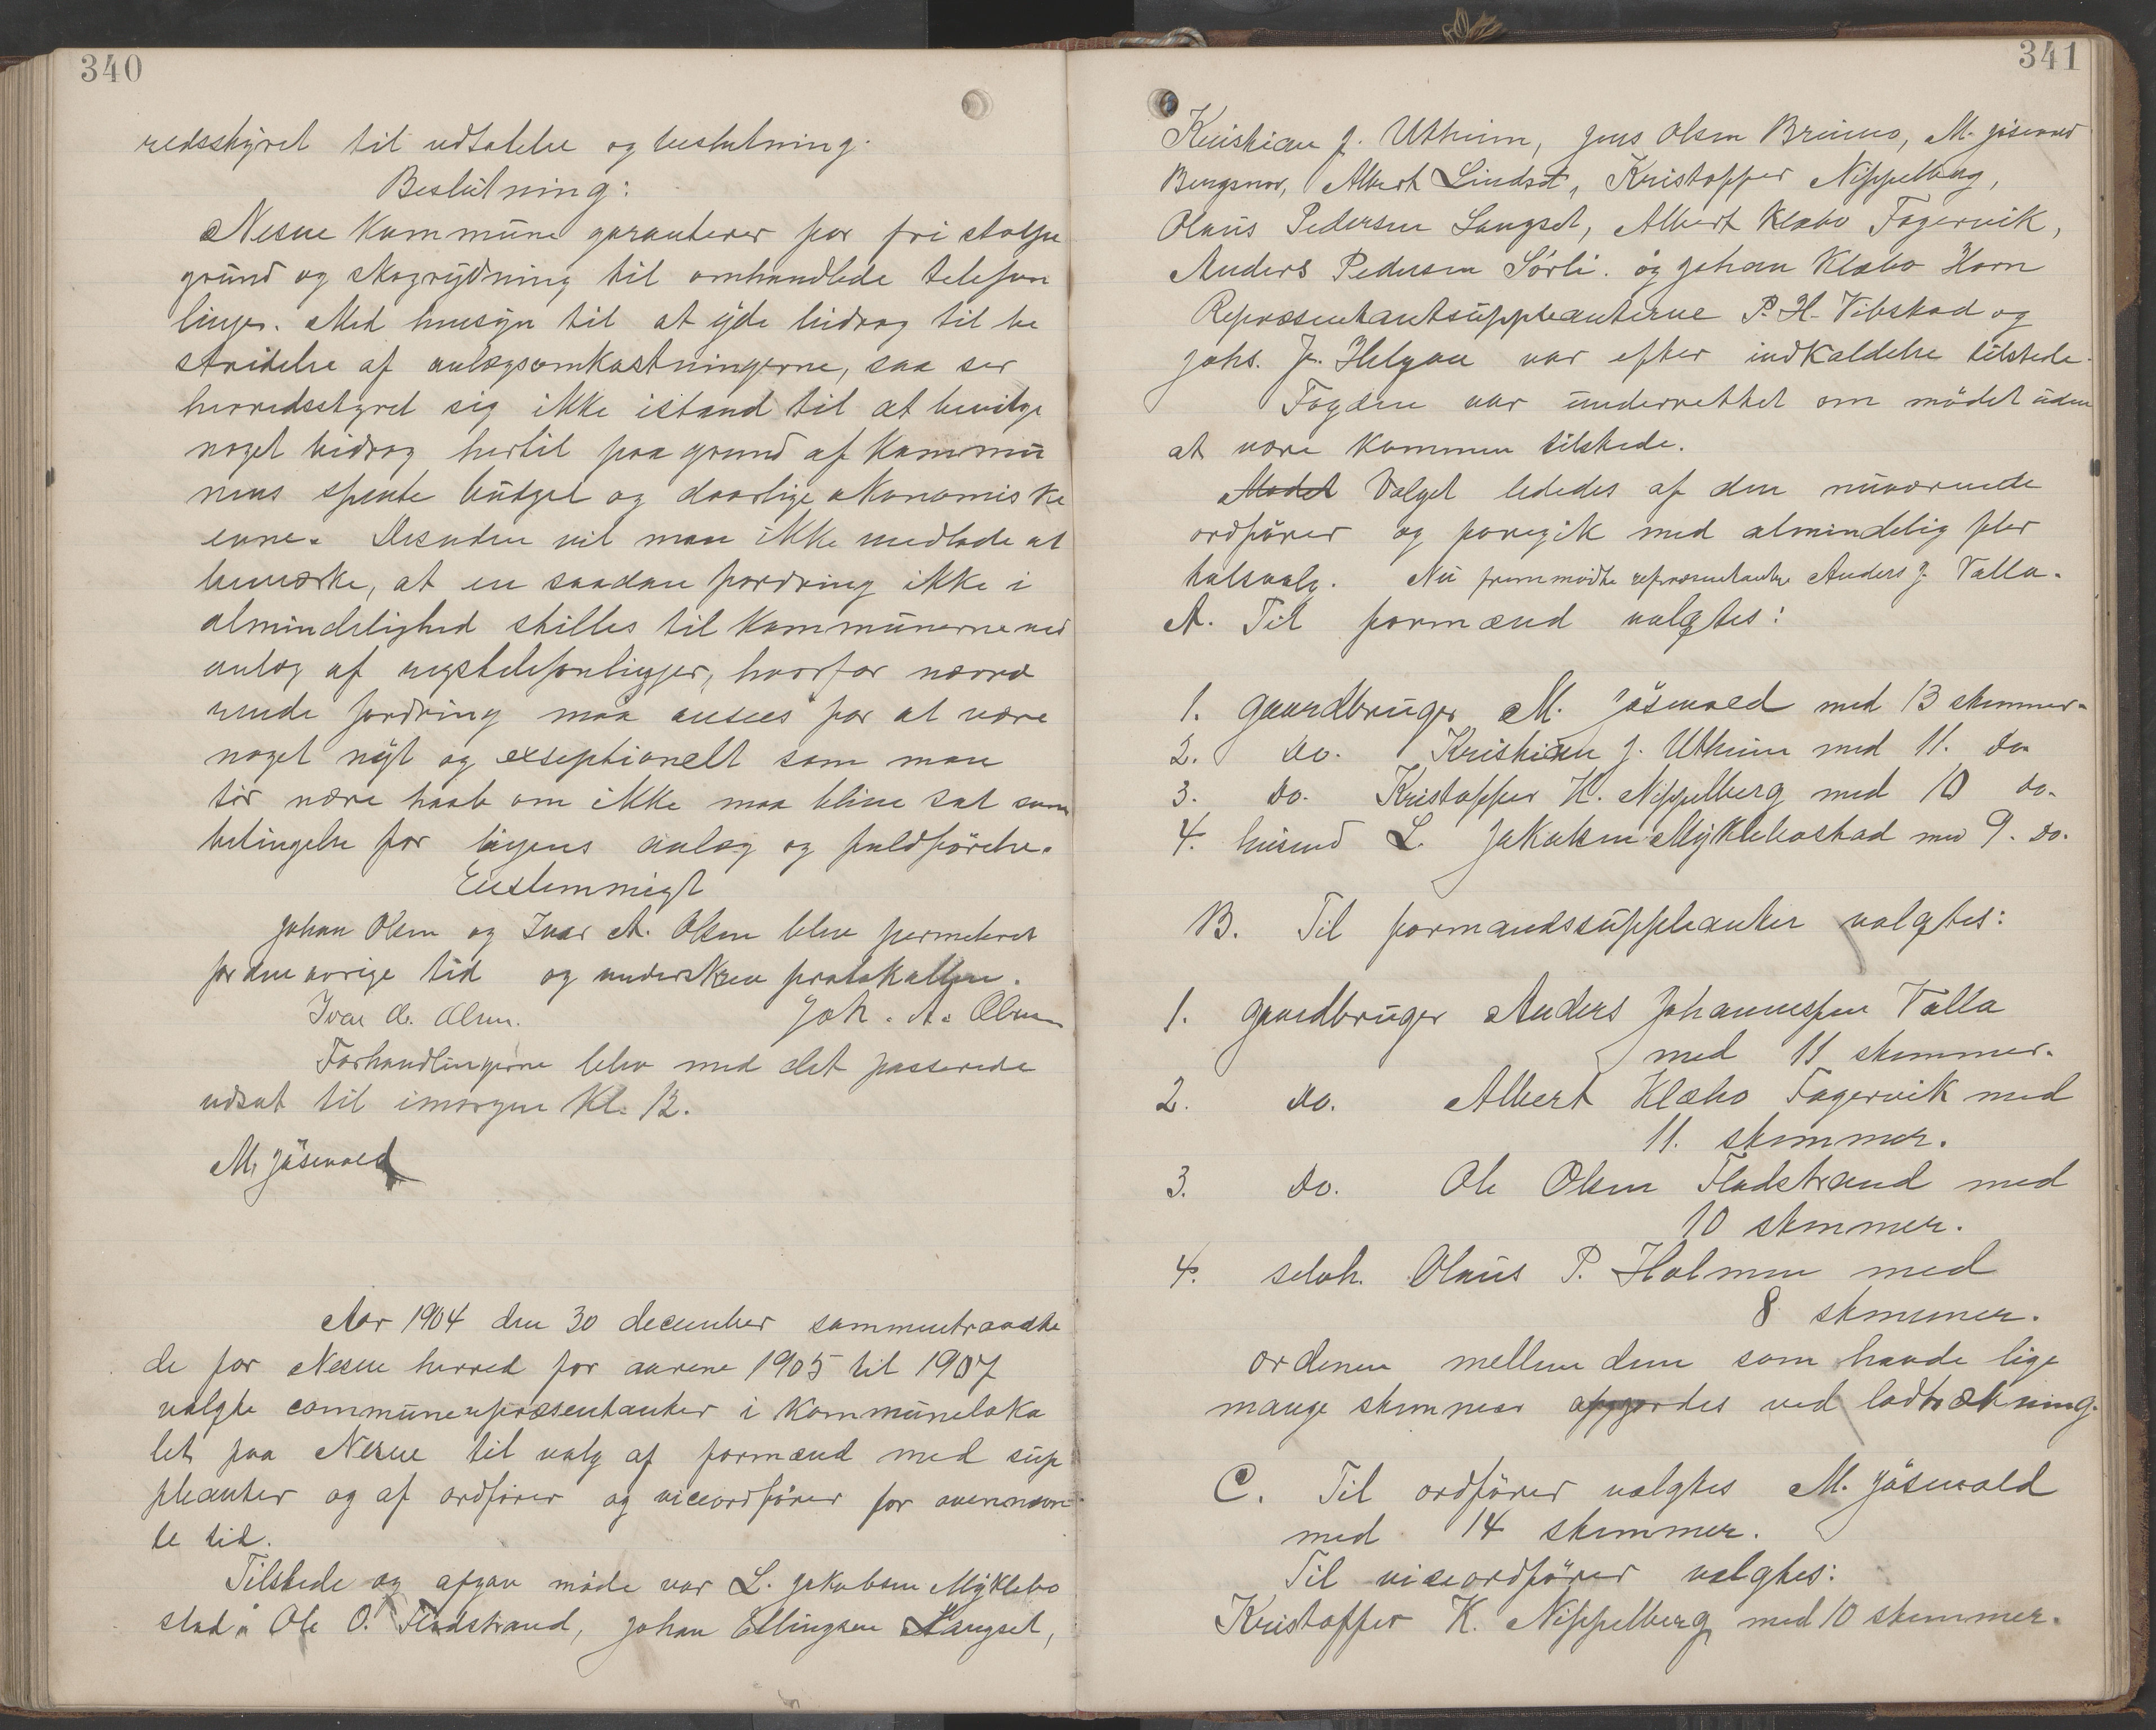 340
redsstyret til udtalelse og beslutning.
Beslutning:
Nesne kommune garanterer for fri stolpe
grund og skogrydning til omhandlede telefon
linjer. Med hensyn til at yde bidrag til be
stridelse af anlægsomkostningerne, saa ser
herredsstyret sig ikke istand til at bevilge
noget bidrag hertil paa grund af kommu
nens spente budget og daarlige økonomiske
evne. Desuden vil man ikke undlade at
bemærke, at en saadan fordring ikke i
almindelighed stilles til kommunerne ved
anlæg af rigstelefonlinjer, hvorfor nærvæ
rende fordring maa ansees for at være
noget nyt og exseptionelt som man
tør nære haab om ikke maa blive sat som
betingelse for linjens anlæg og fuldførelse.
Enstemmigt
Johan Olsen og Ivar A. Olsen blev permeteret
for den øvrige tid og underskrev protokollen.
Ivar A. Olsen. Joh. A. Olsen
Forhandlingerne blev med det passerede
udsat til imorgen kl. 12.
M. Jøsevold
Aar 1904 den 30 december sammentraadte
de for Nesne herred for aarene 1905 til 1907
valgte communerepræsentanter i kommuneloka
let paa Nesne til valg af formænd med sup
pleanter og af ordfører og viceordfører for ovennævn
te tid.
Tilstede og afgav møde var L. Jakobsen Myklebo
stad, Ole O. Fladstrand, Johan Ellingsen Langset,
341
Kristian J. Utheim, Jens Olsen M. Jøsevold
Albert Lindset, Kristoffer Nippelberg,
Olaus Pedersen Langset, Albert Klæbo Fagervik,
Anders Pedersen Sørli. og Johan Klæbo Horn
Repræsentantsuppleanterne P. H. Vibstad og
Johs. J. Helgaa var efter indkaldelse tilstede.
Fogden var underrettet om mødet uden
at være kommen tilstede.
Mødet Valget lededes af den nuværende
ordfører og foregik med almindelig fler
talsvalg. Nu fremmødte repræsentanten Anders J. Valla.
A. Til formænd valgtes:
1. gaardbruger M. Jøsevold med 13 stemmer.
2. do. Kristian J. Utheim med 11. do.
3. do. Kristoffer K. Nippelberg med 10 do.
4. husmd L. Jakobsen Myklebostad med 9. do.
B. Til formandssuppleanter valgtes:
1. gaardbruger Anders Johannessen Valla
med 11 stemmer.
2. do. Albert Klæbo Fagervik med
11. stemmer.
3. do. Ole Olsen Fladstrand med
10 stemmer.
4. selvh. Olaus P. Holmen med
8 stemmer.
ordenen mellem dem som havde lige
mange stemmer afgjordes ved lodtrækning.
C. Til ordfører valgtes M. Jøsevold
med 14 stemmer.
Til viceordfører valgtes:
Kristoffer K. Nippelberg med 10 stemmer.